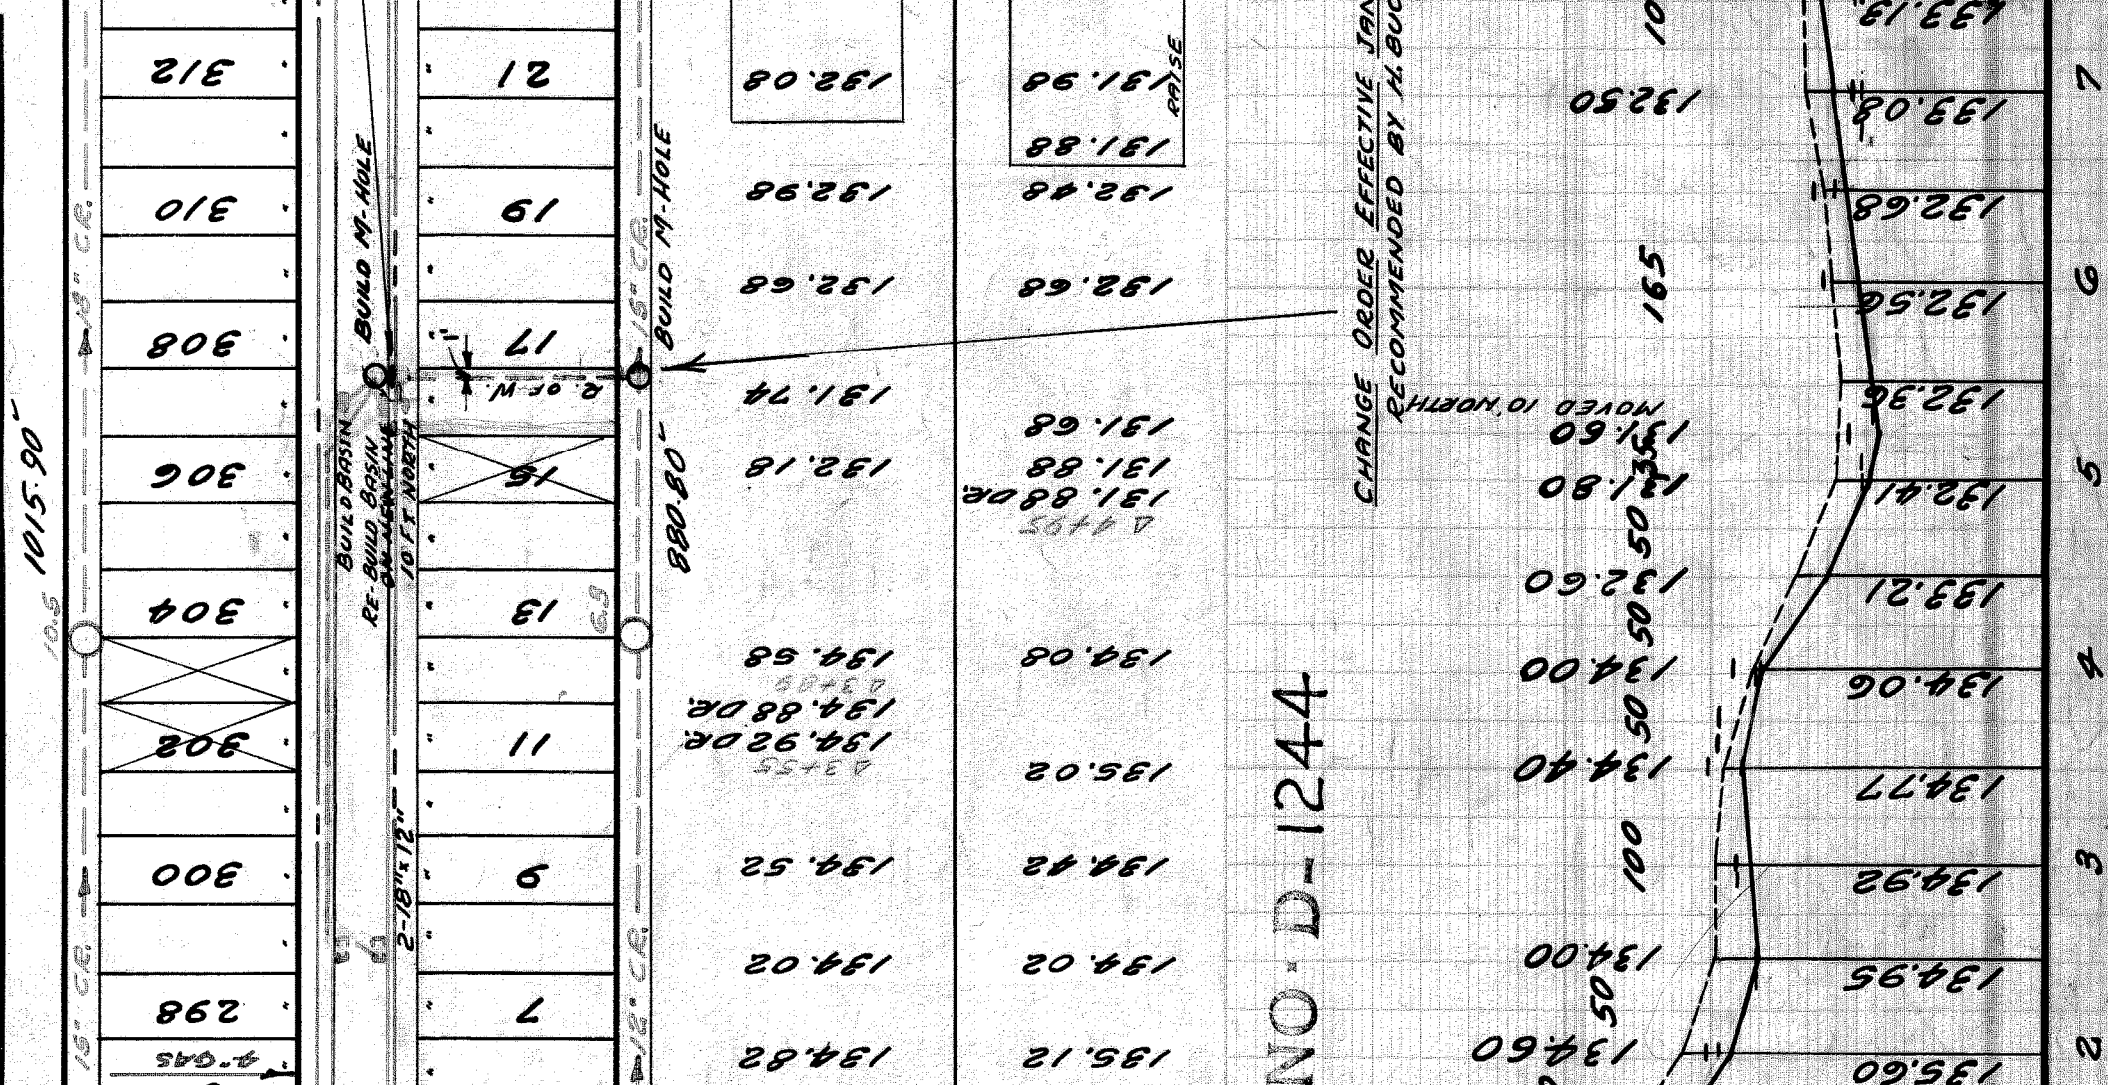 1015.90
10.5
18" C.R.
15" C.R.
312
310
308
306
304
302
300
298
4" GAS
BUILD M-HOLE
BUILD BASIN
RE-BUILD BASIN
ON NEW LINE
10 FT NORTH
2-18"x12"
21
19
17
R. OF W.
15
13
11
9
7
15" C.R.
BUILD M-HOLE
880.80
6.9
12" C.R.
132.08
132.98
132.68
131.74
132.18
134.58
Δ 3+89
134.88 DR.
134.92 DR.
Δ 3+55
134.52
134.02
134.82
131.98
RAISE
131.88
132.48
132.68
131.68
131.88
131.88 DR.
Δ 4+95
134.08
135.02
134.42
134.02
135.12
CHANGE ORDER EFFECTIVE JAN
RECOMMENDED BY H. BUC
NO. D-1244
10
132.50
165
MOVED 10 NORTH
131.60
35
131.80
50
132.60
50
134.00
50
134.40
100
134.00
50
134.60
433.13
133.08
132.68
132.56
132.36
132.41
133.21
134.06
134.77
134.92
134.95
135.60
7
6
5
4
3
2